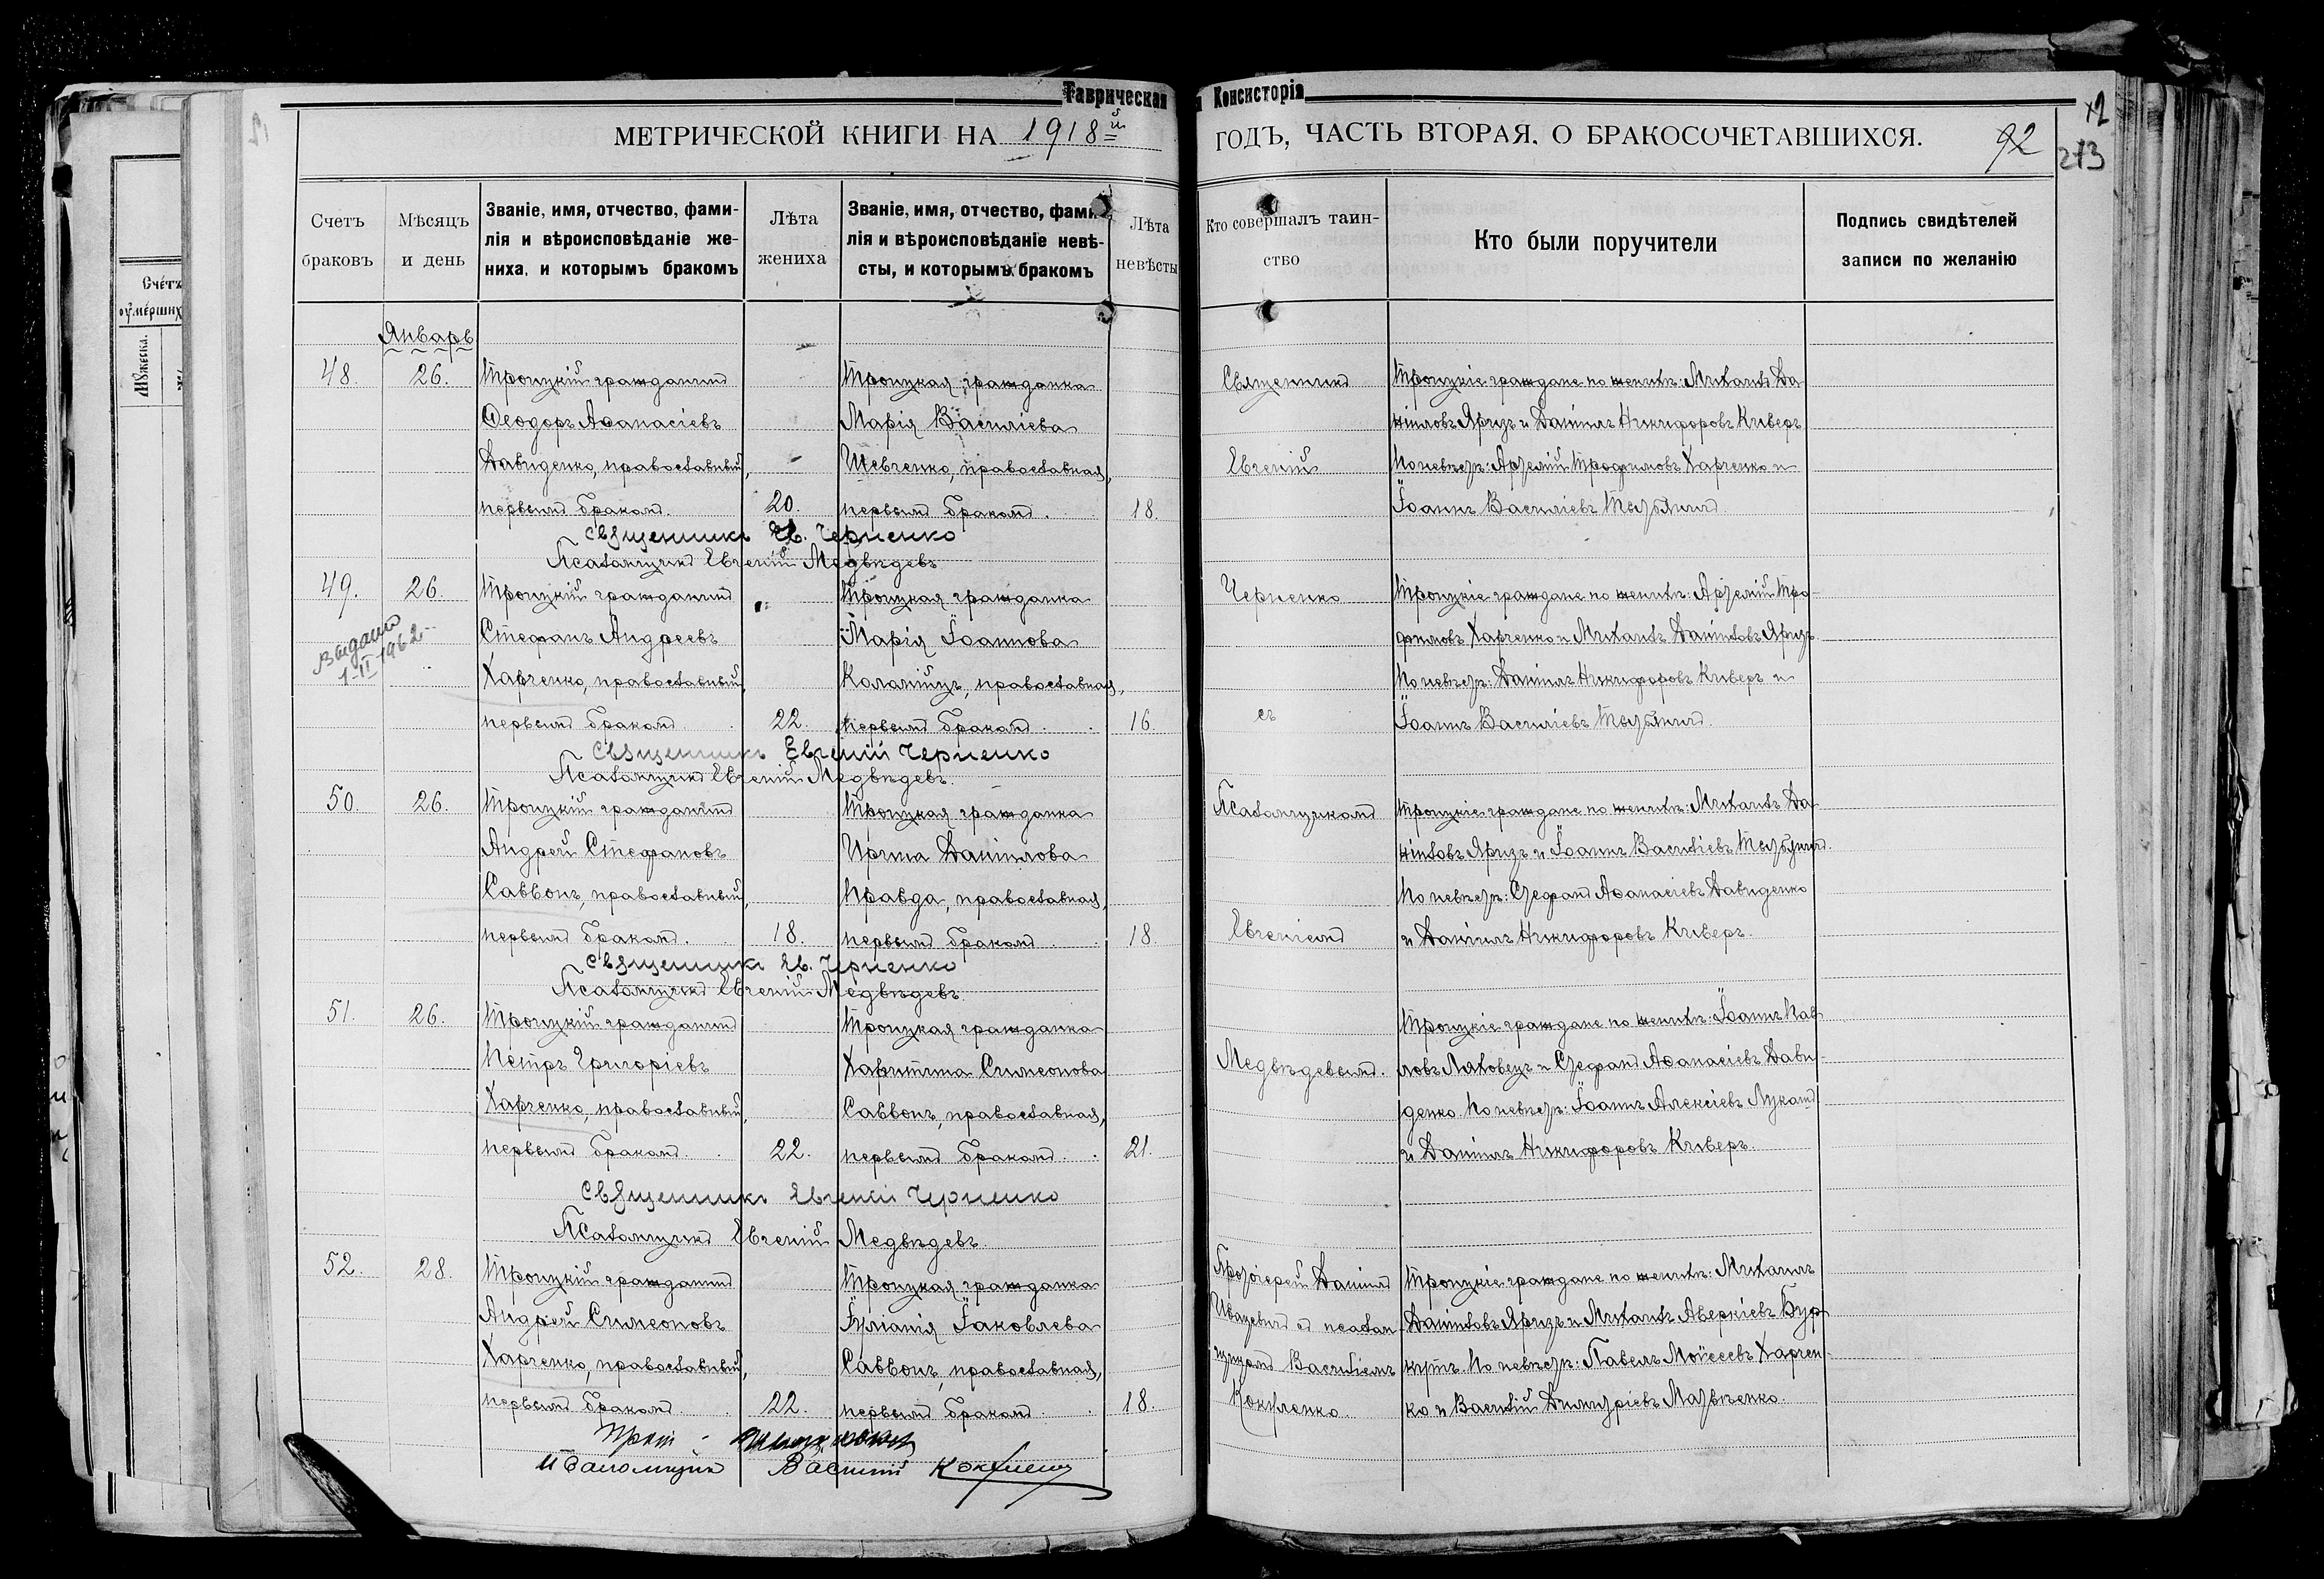 Таврическая Консисторія
МЕТРИЧЕСКОЙ КНИГИ НА 1918й ГОДЪ, ЧАСТЬ ВТОРАЯ, О БРАКОСОЧЕТАВШИХСЯ.
92
213
Счетъ браковъ
Мѣсяцъ и день
Званіе, имя, отчество, фами-
лія и вѣроисповѣданіе же-
ниха, и которымъ бракомъ
Лѣта жениха
Званіе, имя, отчество, фами-
лія и вѣроисповѣданіе невѣ-
сты, и которымъ бракомъ
Лѣта невѣсты
Кто совершалъ таин-
ство
Кто были поручители
Подпись свидѣтелей
записи по желанію
Счетъ
умершихъ
Мужеска.
Январь
48. 26. Троицкій гражданинъ
Ѳеодоръ Аѳанасіевъ
Давиденко, православный,
первымъ бракомъ. 20.
Троицкая гражданка
Марія Василіева
Шевченко, православная,
первымъ бракомъ. 18.
Священникъ Ев. Черненко
Псаломщикъ Евгеній Медвѣдевъ
49. 26. Троицкій гражданинъ
Стефанъ Андреевъ
Харченко, православный,
первымъ бракомъ 22.
Троицкая гражданка
Марія Іоаннова
Коломіецъ, православная,
первымъ бракомъ. 16.
выдано
1-II 1962
Священникъ Евгеній Черненко
Псаломщикъ Евгеній Медвѣдевъ.
50. 26. Троицкій гражданинъ
Андрей Стефановъ
Саввонъ, православный,
первымъ бракомъ. 18.
Троицкая гражданка
Ирина Даніилова
Правда, православная,
первымъ бракомъ. 18.
Священникъ Ев. Черненко
Псаломщикъ Евгеній Медвѣдевъ.
51. 26. Троицкій гражданинъ
Петръ Григоріевъ
Харченко, православный,
первымъ бракомъ. 22.
Троицкая гражданка
Харитина Симеонова
Саввонъ, православная,
первымъ бракомъ. 21.
Священникъ Евгеній Черненко
Псаломщикъ Евгеній Медвѣдевъ.
52. 28. Троицкій гражданинъ
Андрей Симеоновъ
Харченко, православный,
первымъ бракомъ. 22.
Троицкая гражданка
Іуліанія Іаковлева
Саввонъ, православная,
первымъ бракомъ. 18.
Прот.
Псаломщикъ Василій
Священникъ
Евгеній
Черненко
съ
Псаломщикомъ
Евгеніемъ
Медвѣдевымъ.
Протоіерей Даніилъ
съ псалом-
щикомъ Василіемъ
Троицкіе граждане по женихѣ: Михаилъ Да-
ніиловъ Яризъ и Даніилъ Никифоровъ Киверъ
По невѣстѣ: Арсеній Трофимовъ Харченко и
Іоаннъ Василіевъ
Троицкіе граждане по женихѣ: Арсеній Тро-
фимовъ Харченко и Михаилъ Даніиловъ Яризъ
По невѣстѣ: Даніилъ Никифоровъ Киверъ и
Іоаннъ Василіевъ
Троицкіе граждане по женихѣ: Михаилъ Да-
ніиловъ Яризъ и Іоаннъ Василіевъ
По невѣстѣ: Стефанъ Аѳанасіевъ Давиденко
и Даніилъ Никифоровъ Киверъ.
Троицкіе граждане по женихѣ: Іоаннъ Пав-
ловъ Ляховецъ и Стефанъ Аѳанасіевъ Дави-
денко. По невѣстѣ: Іоаннъ Алексіевъ
и Даніилъ Никифоровъ Киверъ.
Троицкіе граждане по женихѣ: Михаилъ
Даніиловъ Яризъ и Михаилъ Аверкіевъ
По невѣстѣ: Павелъ Моисеевъ Харчен-
ко и Василій Димитріевъ